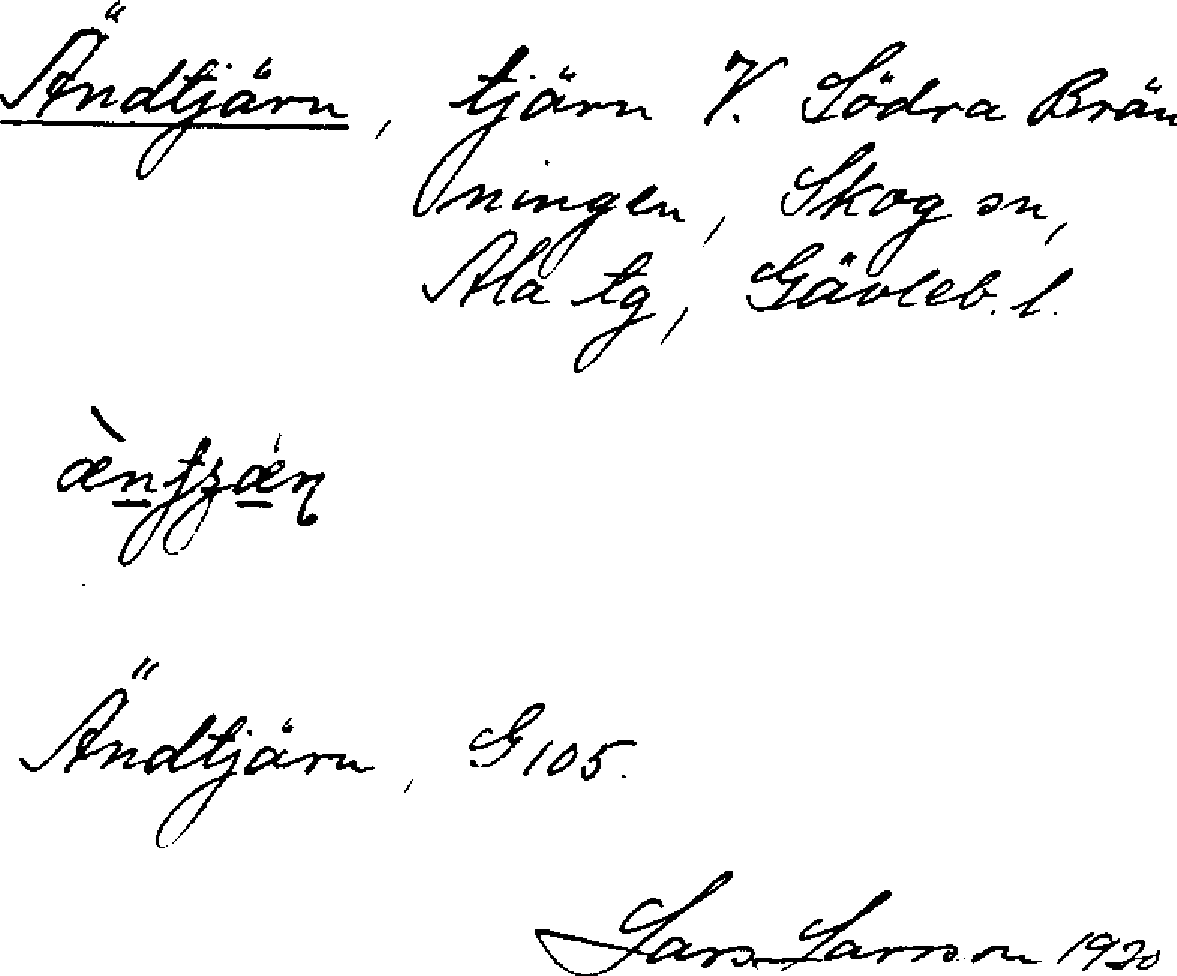 Ändtjärn, tjärn V. Södra Brän
ningen, Skog sn,
Ala tg, Gävleb. l.
Ändtjärn, G 105.
Lars Larsson 1920